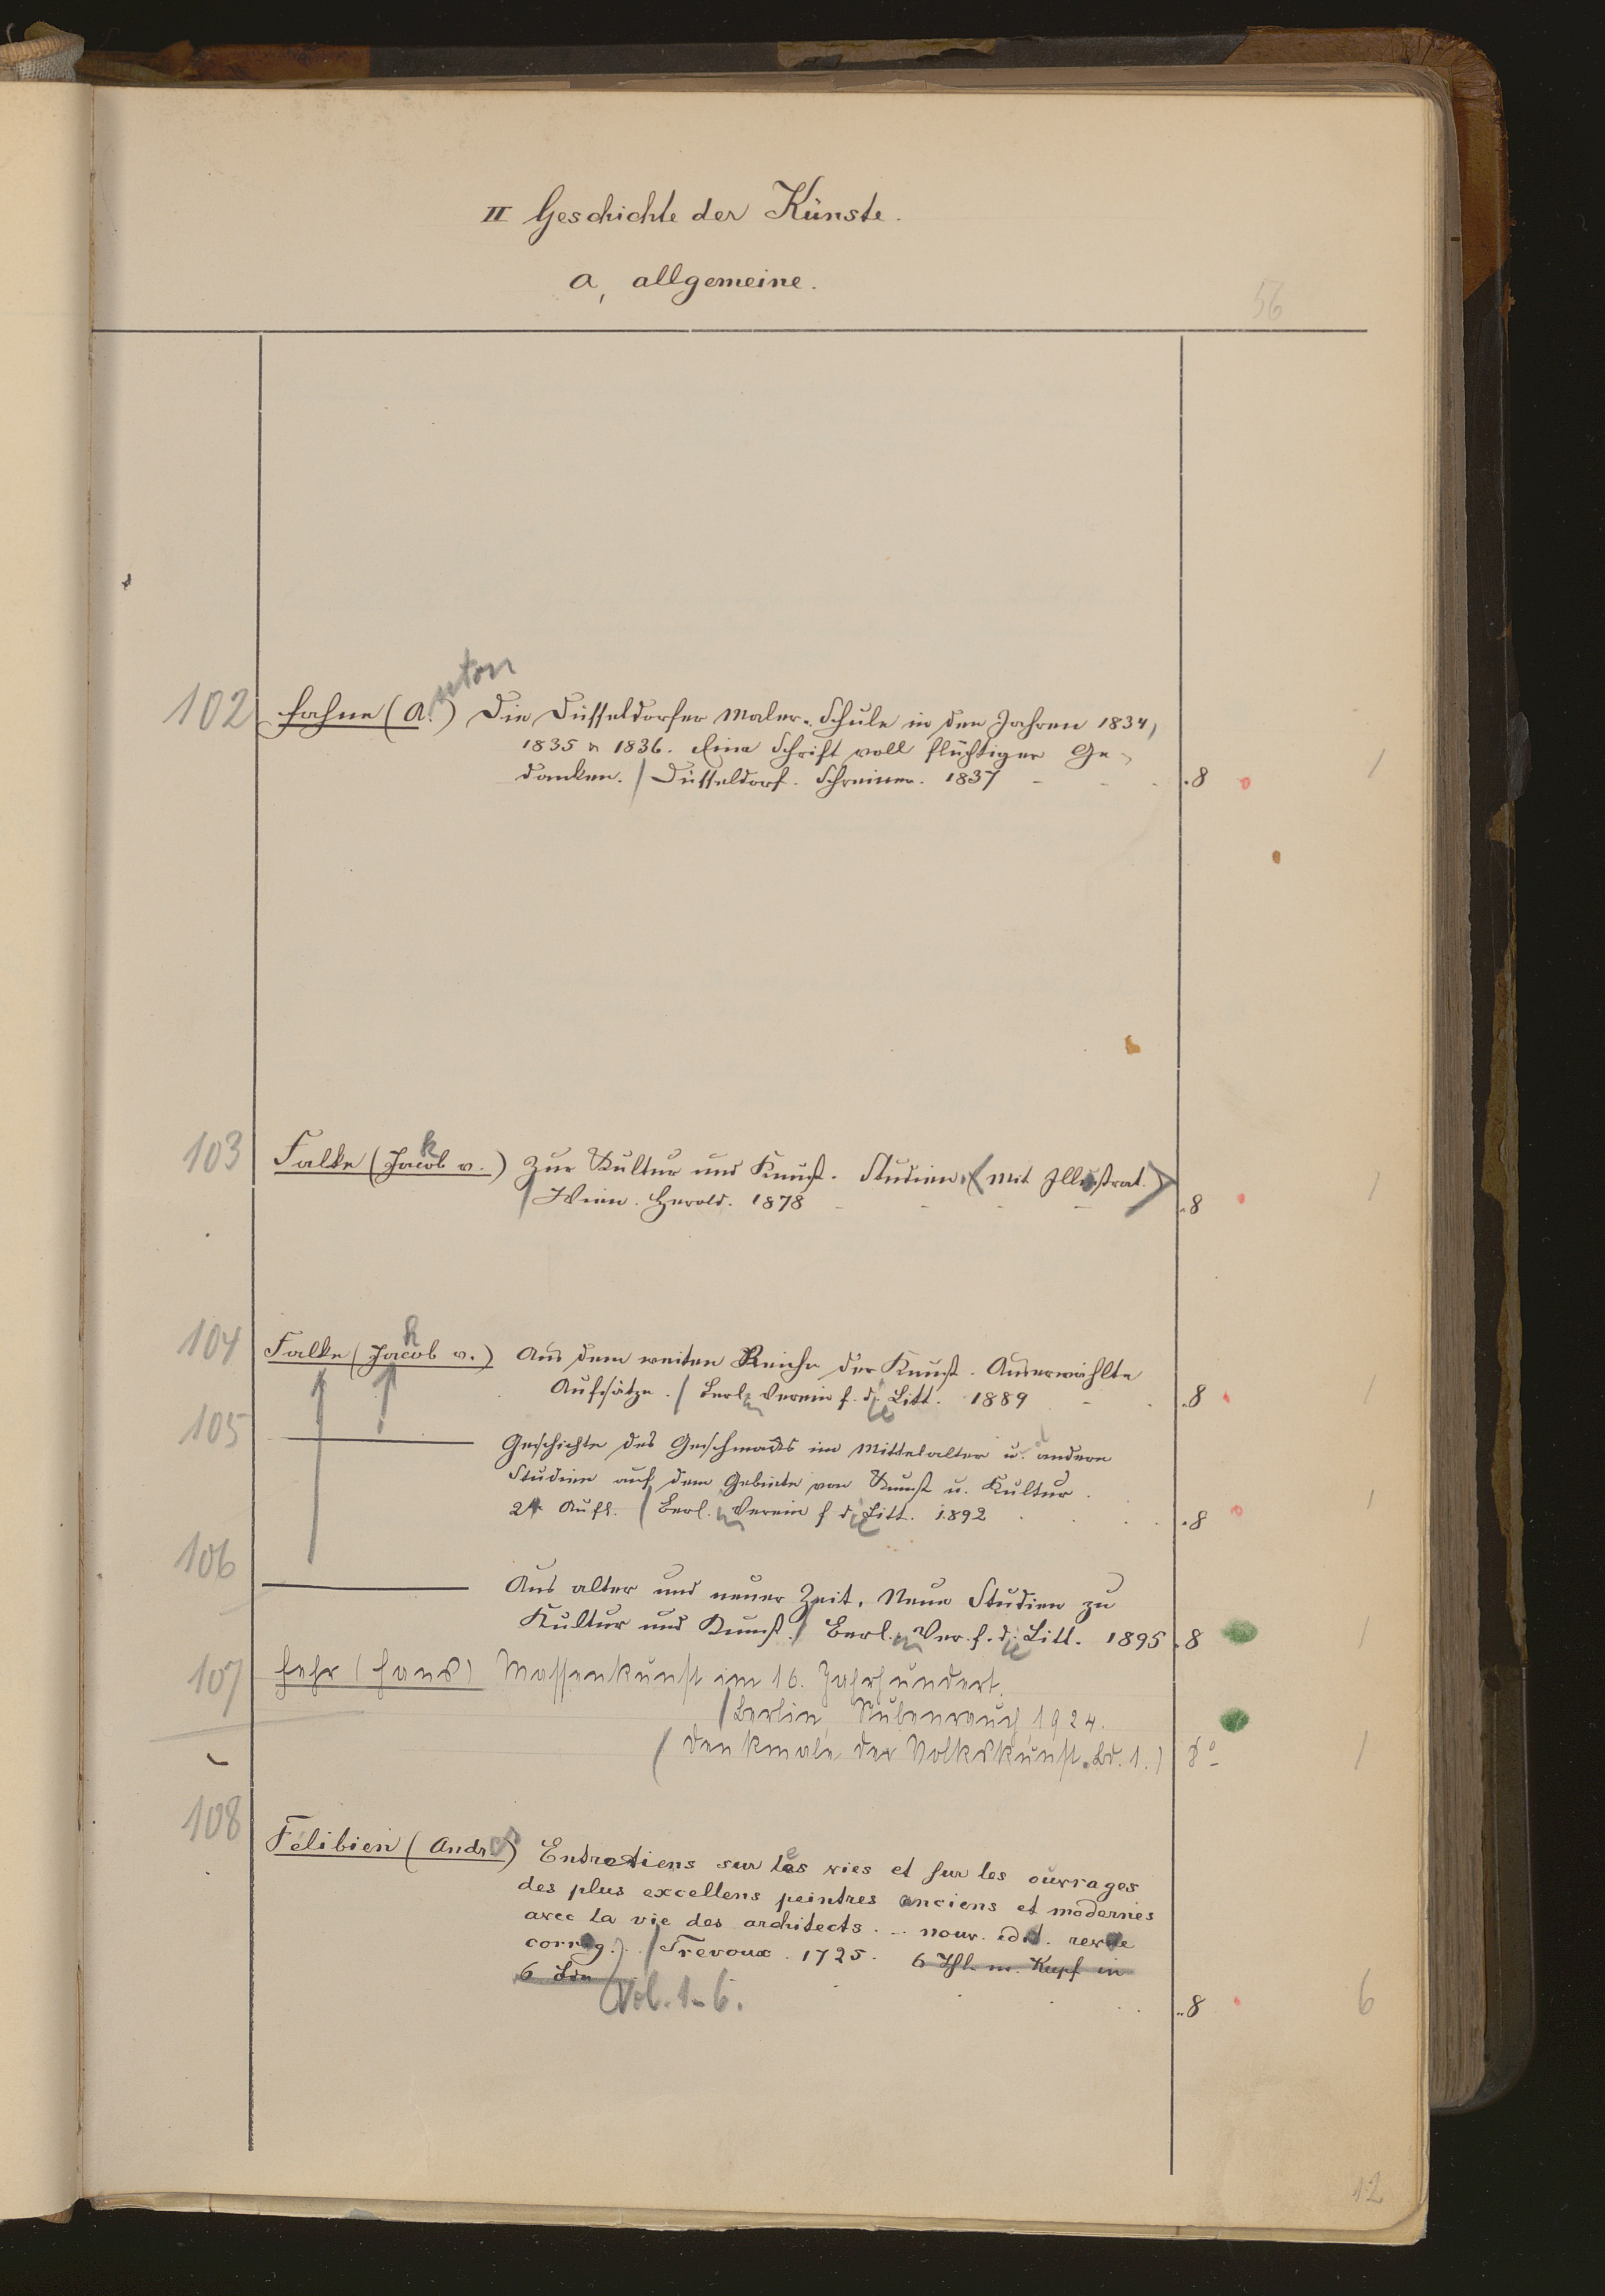 II Geschichte der Künste.
a, allgemeine.
56
102 Fahne (A.nton) Die Düsseldorfer Maler-Schule in den Jahren 1834,
1835 & 1836. Eine Schrift voll flüchtiger Ge-
danken. / Düsseldorf. Schreiner. 1837 - - - .8 1
103 Falke (Jakob v.) Zur Kultur und Kunst. Studien. (Mit Illustrat.)
/ Wien. Gerold. 1878 - - - - .8 1
104 Falke (Jakob v.) Aus dem weiten Reiche der Kunst. Auserwählte
Aufsätze. / Berlin Verein f. die Litt. 1889 - - .8 1
105 ——— Geschichte des Geschmacks im Mittelalter u. andere
Studien auf dem Gebiete von Kunst u. Kultur.
2. Aufl. / Berl.in Verein f die Litt. 1892 . . . .8 1
106 ——— Aus alter und neuer Zeit. Neue Studien zu
Kultur und Kunst. / Berl.in Ver. f. die Litt. 1895 .8 1
107 Fehr (Hans) Massenkunst im 16. Jahrhundert.
/ Berlin, Stubenrauch, 1924.
(Denkmale der Volkskunst. Bd. 1.) 8° 1
108 Félibien (André) Entretiens sur les vies et sur les ouvrages
des plus excellens peintres anciens et modernes
avec la vie des architects . .. nouv. édit. revue
corrig. . / Trevoux . 1725. 6 Thl. m. Kupf in
6 Bdn
Vol. 1-6. . . . .8 6
12